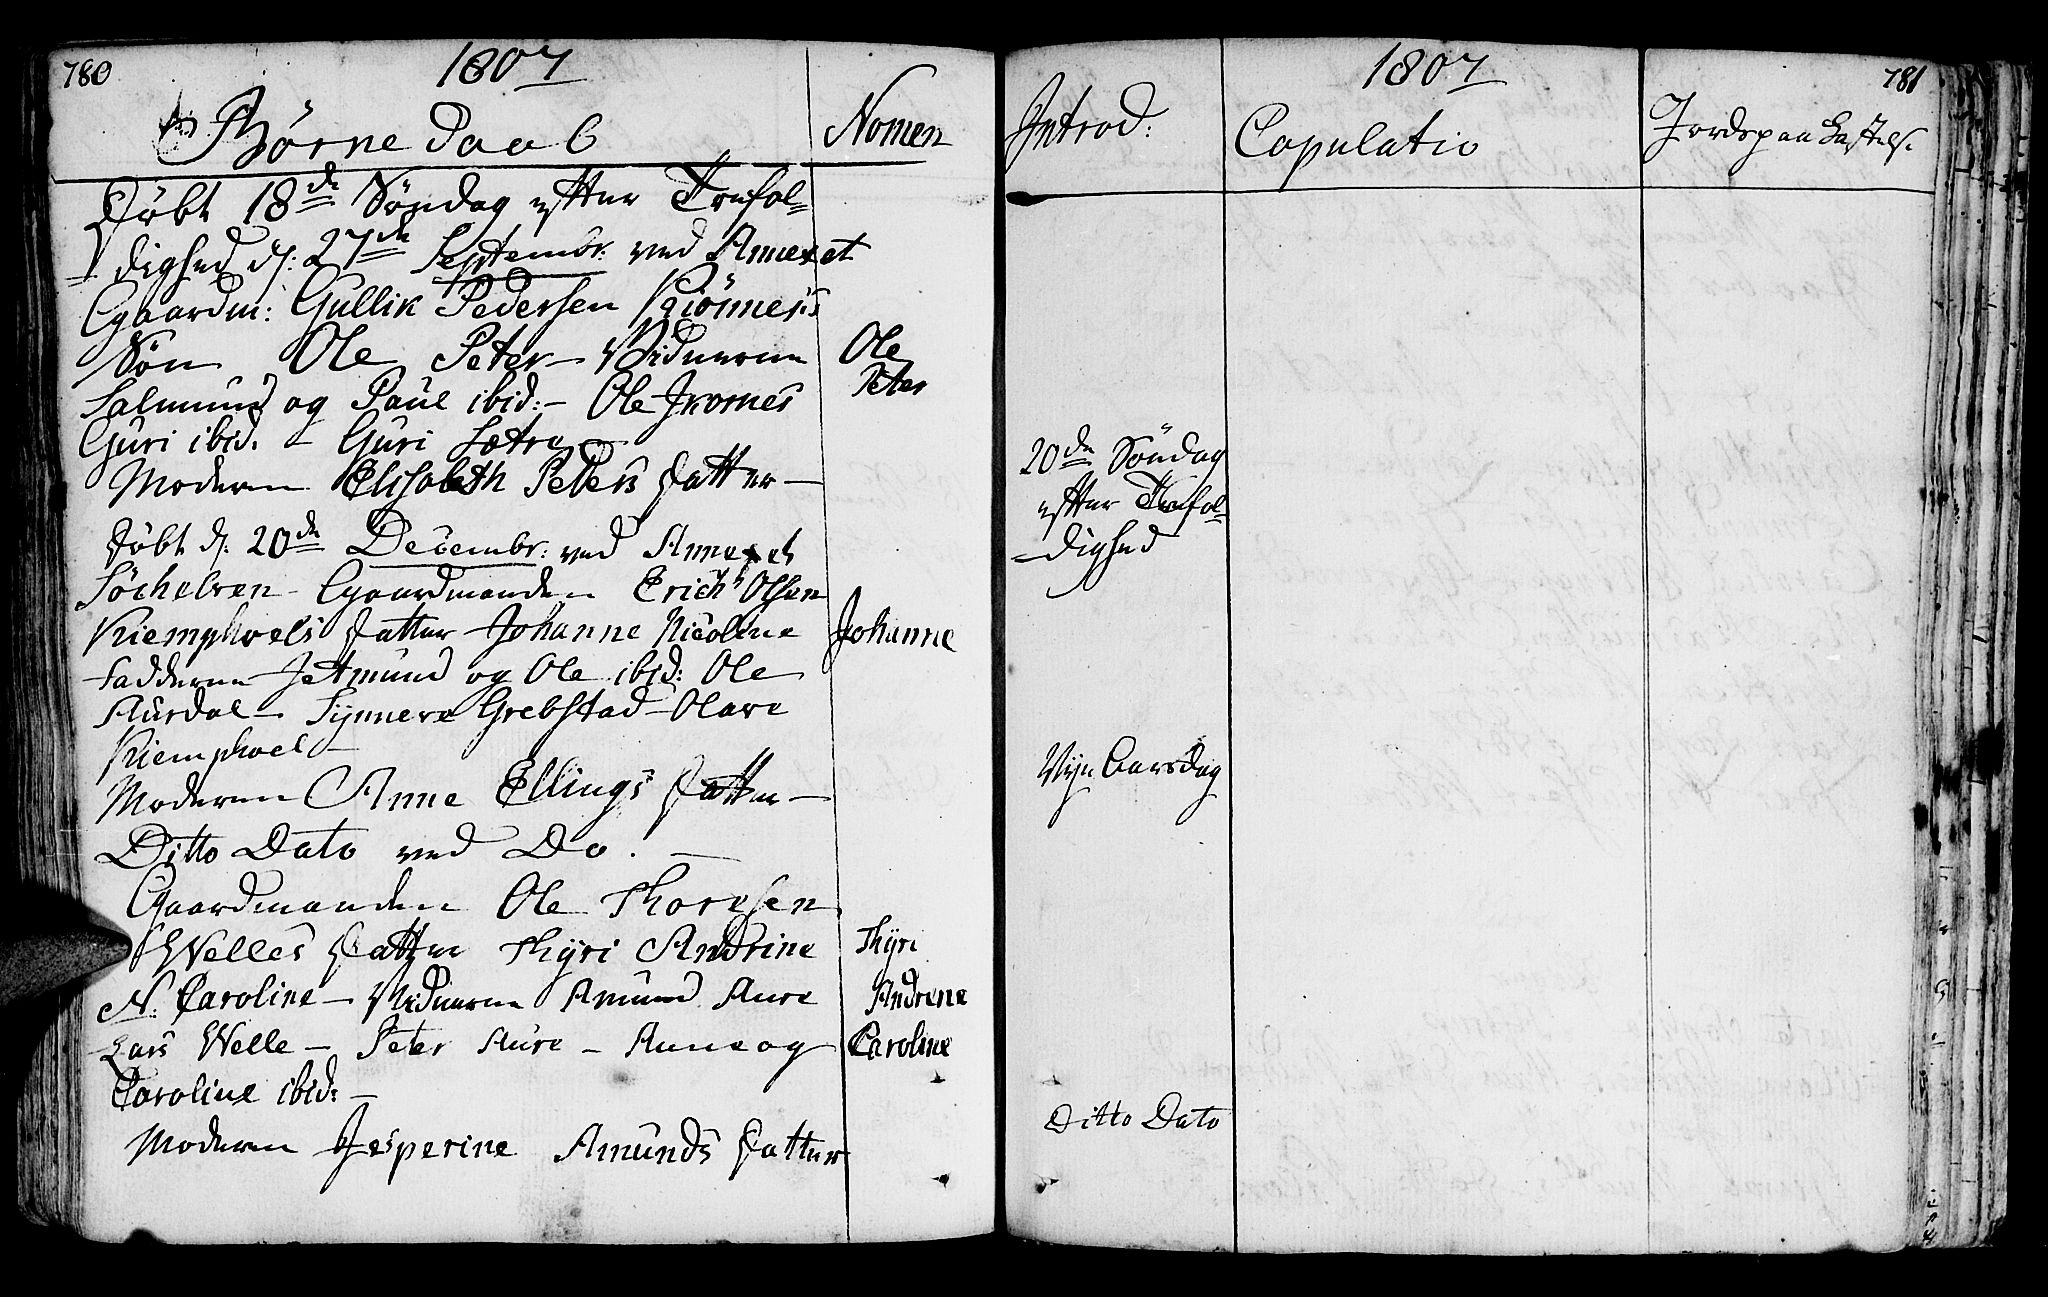 780
1807
Børne Daab
Nomen
Døbt 18de Søndag efter Trefol=
dighed d: 27de Septembr: ved Annexet
Gaardm: Gullik Pedersen Kiønnes's
Søn Ole Peter - Vidnerne
Salmund og Paul ibid: - Ole Jkornes
Guri ibid: - Guri Sætre -
Moderen Elisabeth Peters Datter -
Ole
Peter
Døbt d: 20de Decembr: ved Annexet
Søchelven - Gaardmanden Erich Olsen
Kiemphoels Datter Johanne Nicoline
Fadderne Jetmund og Ole ibid: Ole
Aurdal - Synneve Grebstad - Olave
Kiemphoel -
Moderen Anne Ellings Datter -
Johanne
Ditto Dato ved Do. -
Gaardmanden Ole Thoresen
Welles Datter Thyri Andrine
N: Caroline - Vidnerne Amund Aure
Lars Welle - Peter Aure - Anne og
Caroline ibid: -
Moderen Jesperine Amunds Datter
Thyri
Andrene
Caroline
1807
781
Introd:
Copulatio
Jordspaakastels.
20de Søndag
efter Trefol=
dighed
Nyt Aarsdag
Ditto Dato